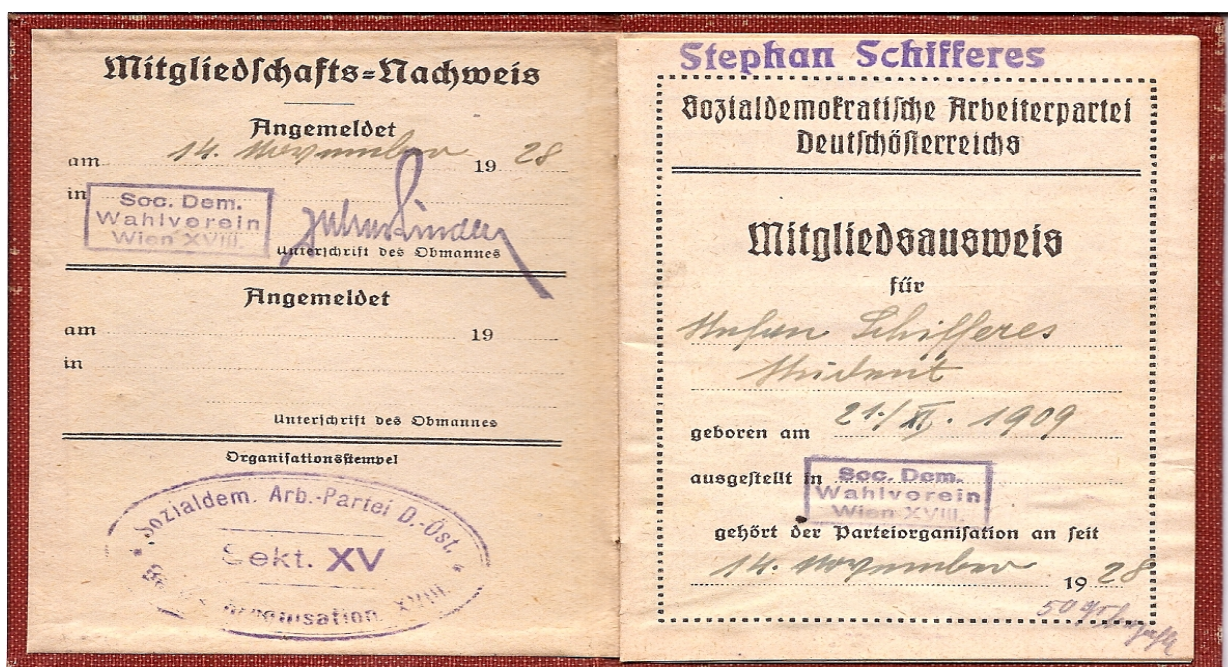 Mitgliedschafts-Nachweis
Angemeldet
am 14. November 19 28
in
Soc. Dem.
Wahlverein
Wien XVIII.
Unterschrift des Obmannes
Angemeldet
am 19
in
Unterschrift des Obmannes
Organisationsstempel
Sozialdem. Arb.-Partei D.-Öst.
Sekt. XV
organisation XVIII.
Stephan Schifferes
Sozialdemokratische Arbeiterpartei
Deutschösterreichs
Mitgliedsausweis
für
Stefan Schifferes
Student
geboren am 21./XI. 1909
ausgestellt in Soc. Dem.
Wahlverein
Wien XVIII.
gehört der Parteiorganisation an seit
14. November 19 28
50